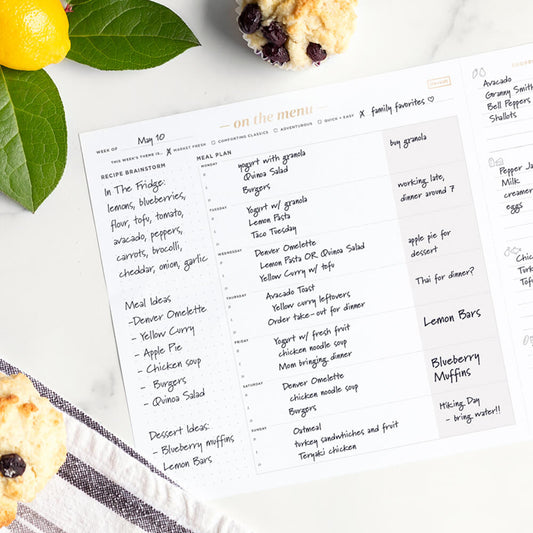 on the menu
WEEK OF May 10
THIS WEEK'S THEME IS... x MARKET FRESH COMFORTING CLASSICS ADVENTUROUS QUICK + EASY x family favorites ♡
RECIPE BRAINSTORM
In The Fridge:
lemons, blueberries,
flour, tofu, tomato,
avocado, peppers,
carrots, brocolli,
cheddar, onion, garlic
Meal Ideas
- Denver Omelette
- Yellow Curry
- Apple Pie
- Chicken soup
- Burgers
- Quinoa Salad
Dessert Ideas:
- Blueberry muffins
Lemon Bars
MEAL PLAN
MONDAY
yogurt with granola
Quinoa Salad
Burgers
buy granola
TUESDAY
Yogurt w/ granola
Lemon Pasta
Taco Tuesday
working late,
dinner around 7
WEDNESDAY
Denver Omelette
Lemon Pasta OR Quinoa Salad
Yellow Curry w/ tofu
apple pie for
dessert
THURSDAY
Avocado Toast
Yellow curry leftovers
Order take-out for dinner
Thai for dinner?
FRIDAY
Yogurt w/ fresh fruit
chicken noodle soup
Mom bringing dinner
Lemon Bars
SATURDAY
Denver Omelette
chicken noodle soup
Burgers
Blueberry
Muffins
SUNDAY
Oatmeal
turkey sandwhiches and fruit
Teryaki chicken
Hiking Day
- bring water!!
Avocado
Granny Smith
Bell Peppers
Shallots
Pepper Ja
Milk
creamer
eggs
Chic
Turk
Tof